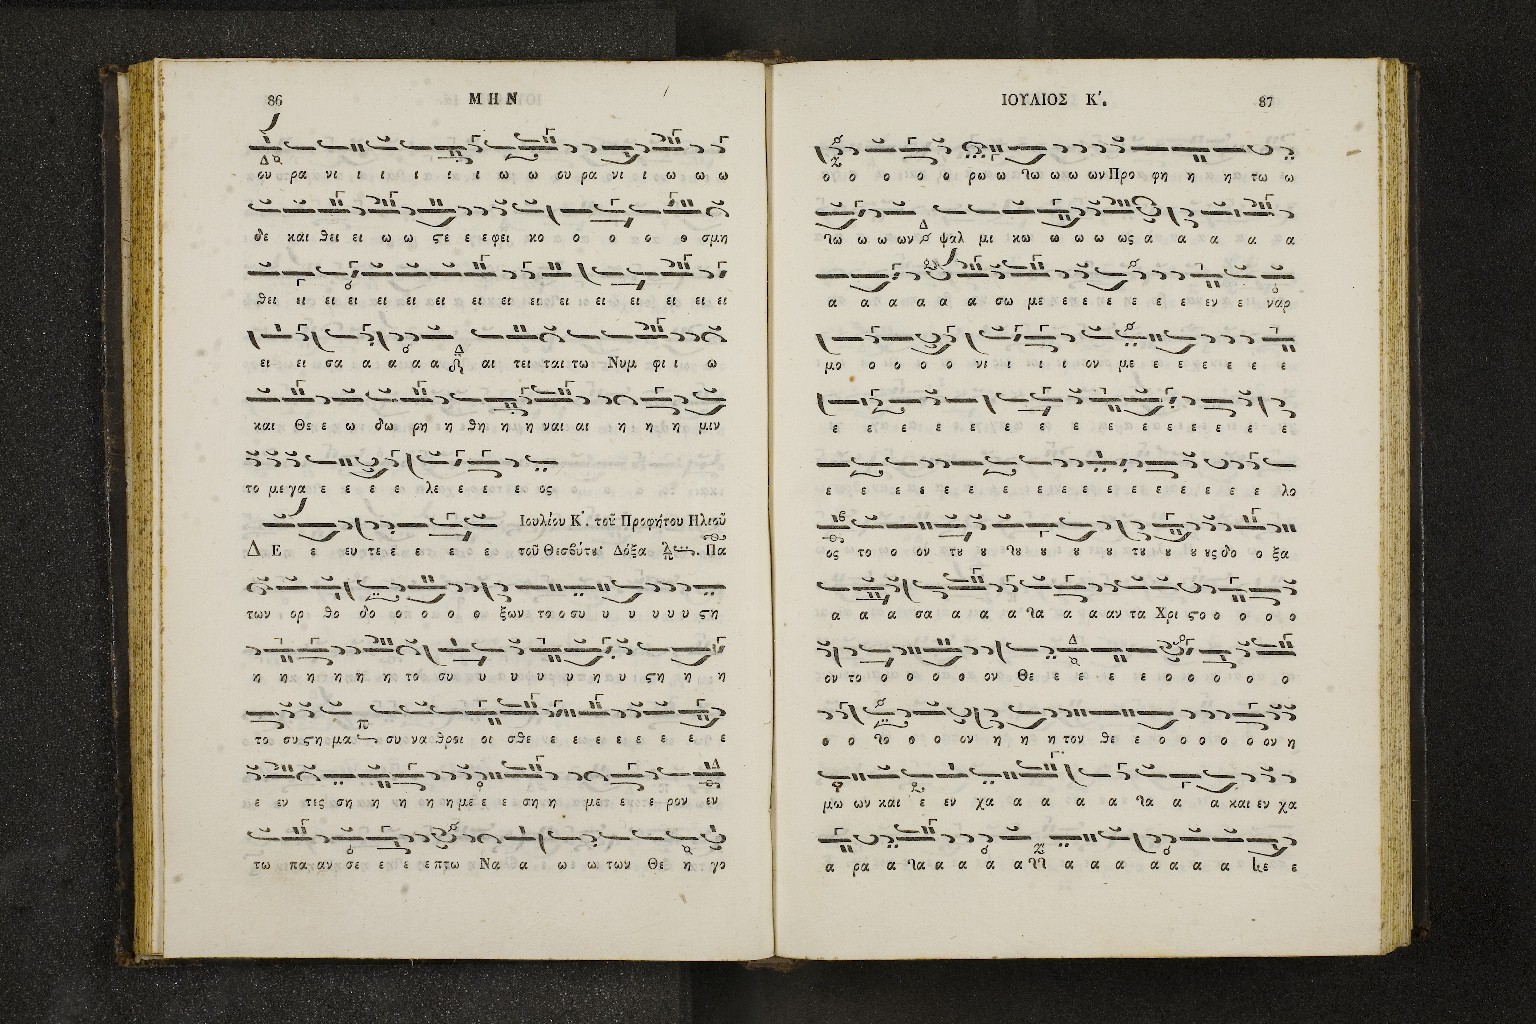 86 ΜΗΝ
ου ρα νι ι ι ι ι ι ω ω ου ρα νι ι ω ω ω
δε και θει ει ω ω ϛε ε ε φει κο ο ο ο ο ο σμη
θει ει ει ει ει ει ει ει ει ει ει ει ει ει ει ει
ει ει σα α α α α αι τει ται τω Νυμ φι ι ω
και Θε ε ω δω ρη η θη η η ναι αι η η η μιν
το με γα ε ε ε ε λε ε ε ε ος
Ιουλίου Κ΄. τοῦ Προφήτου Ηλιοῦ
Δ Ε ε ευ τε ε ε ε ε τοῦ Θεσβύτȣ· Δόξα Πα
των ορ θο δο ο ο ο ο ξων το ο συ υ υ υ υ υ ϛη
η η η η η η το συ υ υ υ υ η υ ϛη η η
το συ ϛη μα συ να θροι οι σθε ε ε ε ε ε ε ε
ε εν τις ση η η η η με ε ε ση η με ε ε ρον εν
τω πα αν σε ε ε ε πτω Να α ω ω των Θε η γο
ΙΟΥΛΙΟΣ Κ΄. 87
ο ο ο ο ο ρω ω ω ω ω ων Προ φη η η τω ω
ω ω ων ψαλ μι κω ω ω ω ως α α α α α
α α α α α α σω με ε ε ε ε ε ε ε εν ε ναρ
μο ο ο ο ο νι ι ι ι ον με ε ε ε ε ε ε
ε ε ε ε ε ε ε ε ε ε ε ε ε ε
ε ε ε ε ε ε ε ε ε ε ε ε ε ε ε ε λο
ος το ο ον τȣ ȣ ȣ ȣ ȣ ȣ τȣ ȣ ȣ ȣς δο ο ξα
α α α σα α α α α α αν τα Χρι ϛο ο ο ο ο
ον το ο ο ο ο ον Θε ε ε ε ε ο ο ο ο ο
ο ο ο ο ο ον η η η τον θε ε ο ο ο ο ο ον η
μω ων και ε εν χα α α α α α α α και εν χα
α ρα α α α α α α α α α α α α α κε ε